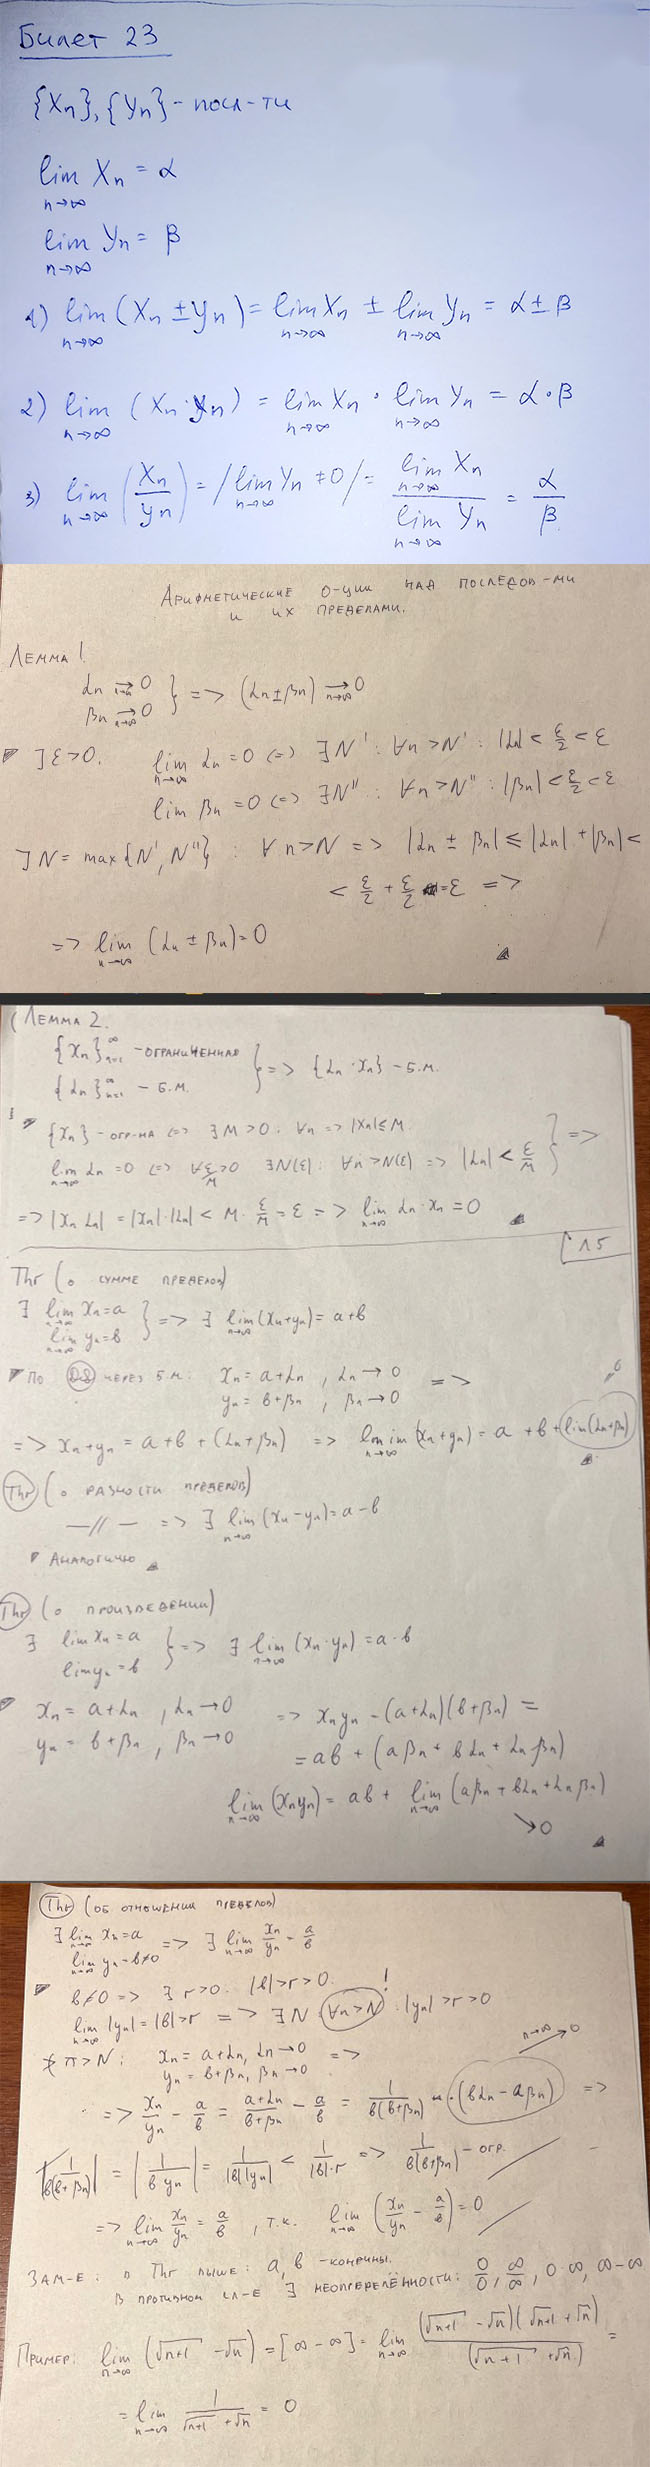 Билет 23
{Xn}, {Yn} - посл-ти
lim Xn = α
n→∞
lim Yn = β
n→∞
1) lim (Xn ± Yn) = lim Xn ± lim Yn = α ± β
n→∞ n→∞ n→∞
2) lim (Xn · Yn) = lim Xn · lim Yn = α · β
n→∞ n→∞ n→∞
3) lim (Xn/Yn) = / lim Yn ≠ 0 / = lim Xn / lim Yn = α/β
n→∞ n→∞ n→∞ n→∞
Арифметические о-ции над последов-ми
и их пределами.
Лемма 1.
αn → 0
βn → 0 } => (αn ± βn) → 0
n→∞
∃ ε > 0. lim αn = 0 <=> ∃ N' : ∀n > N' : |αn| < ε/2 < ε
n→∞
lim βn = 0 <=> ∃ N'' : ∀n > N'' : |βn| < ε/2 < ε
n→∞
∃ N = max{N', N''} : ∀ n > N => |αn ± βn| ≤ |αn| + |βn| <
< ε/2 + ε/2 = ε =>
=> lim (αn ± βn) = 0
n→∞
Лемма 2.
{xn}∞n=1 - ограниченная
{αn}∞n=1 - б.м. } => {αn · xn} - б.м.
{xn} - огр-на <=> ∃ M > 0 : ∀n => |xn| ≤ M
lim αn = 0 <=> ∀ ε/M > 0 ∃ N(ε) : ∀n > N(ε) => |αn| < ε/M } =>
n→∞
=> |xn αn| = |xn|·|αn| < M · ε/M = ε => lim αn · xn = 0
n→∞
Л5
Thr (о сумме пределов)
∃ lim xn = a
n→∞
lim yn = b } => ∃ lim (xn + yn) = a + b
n→∞ n→∞
По через б.м: xn = a + αn , αn → 0
yn = b + βn , βn → 0 =>
=> xn + yn = a + b + (αn + βn) => lim (xn + yn) = a + b + lim(αn + βn)
n→∞
0
Thr (о разности пределов)
—//— => ∃ lim (xn - yn) = a - b
n→∞
Аналогично
Thr (о произведении)
∃ lim xn = a
lim yn = b } => ∃ lim (xn · yn) = a · b
n→∞
xn = a + αn , αn → 0 => xn yn = (a + αn)(b + βn) =
yn = b + βn , βn → 0
= ab + (aβn + bαn + αnβn)
lim (xn yn) = ab + lim (aβn + bαn + αnβn)
n→∞ n→∞
↘ 0
Thr (об отношении пределов)
∃ lim xn = a
n→∞
lim yn = b ≠ 0 => ∃ lim xn/yn = a/b
n→∞ n→∞
b ≠ 0 => ∃ r > 0 : |b| > r > 0. !
lim |yn| = |b| > r => ∃ N : ∀n > N : |yn| > r > 0
n→∞
n > N : xn = a + αn, αn → 0 =>
yn = b + βn, βn → 0
n→∞ 0
=> xn/yn - a/b = (a + αn)/(b + βn) - a/b = 1/(b(b + βn)) · (bαn - aβn) =>
|1/(b(b + βn))| = |1/(b yn)| = 1/(|b||yn|) < 1/(|b|·r) => 1/(b(b + βn)) - огр.
=> lim xn/yn = a/b , т.к. lim (xn/yn - a/b) = 0
n→∞ n→∞
Зам-е: в Thr выше: a, b - конечны.
В противном сл-е ∃ неопределённости: 0/0, ∞/∞, 0·∞, ∞-∞
Пример: lim (√n+1 - √n) = [∞ - ∞] = lim (√n+1 - √n)(√n+1 + √n) / (√n+1 + √n) =
n→∞ n→∞
= lim 1/(√n+1 + √n) = 0
n→∞